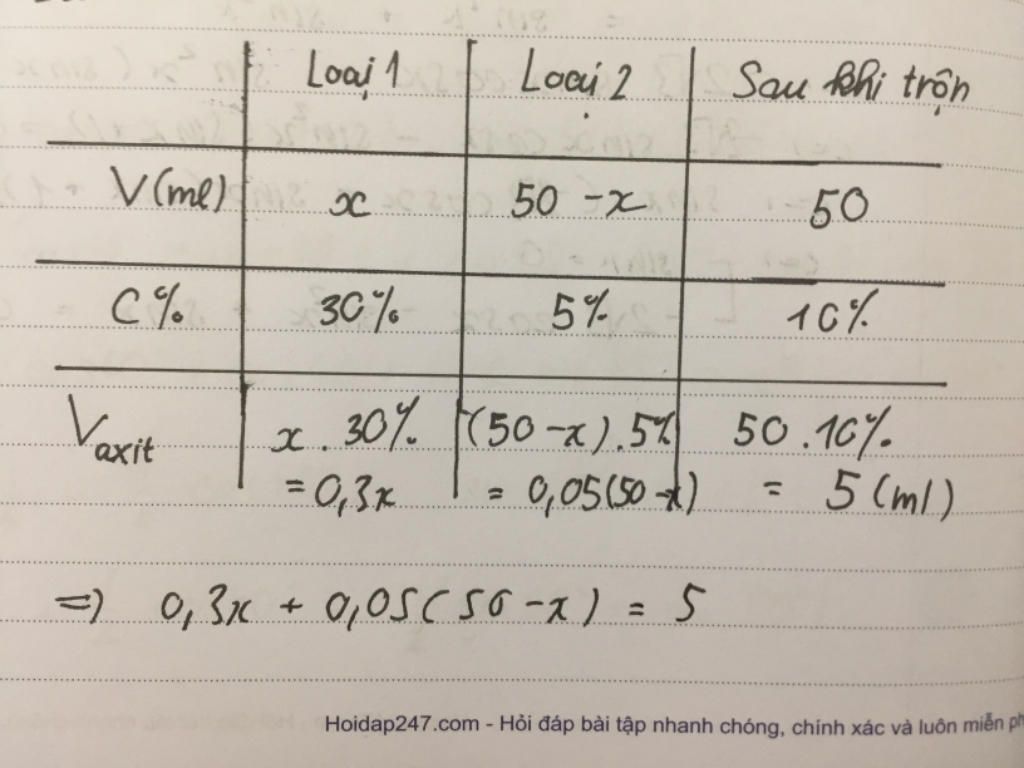 Loại 1 Loại 2 Sau khi trộn
V(ml) x 50 - x 50
C% 30% 5% 10%
Vaxit x . 30% (50 - x) . 5% 50 . 10%
= 0,3x = 0,05(50 - x) = 5 (ml)
=> 0,3x + 0,05(50 - x) = 5
Hoidap247.com - Hỏi đáp bài tập nhanh chóng, chính xác và luôn miễn ph